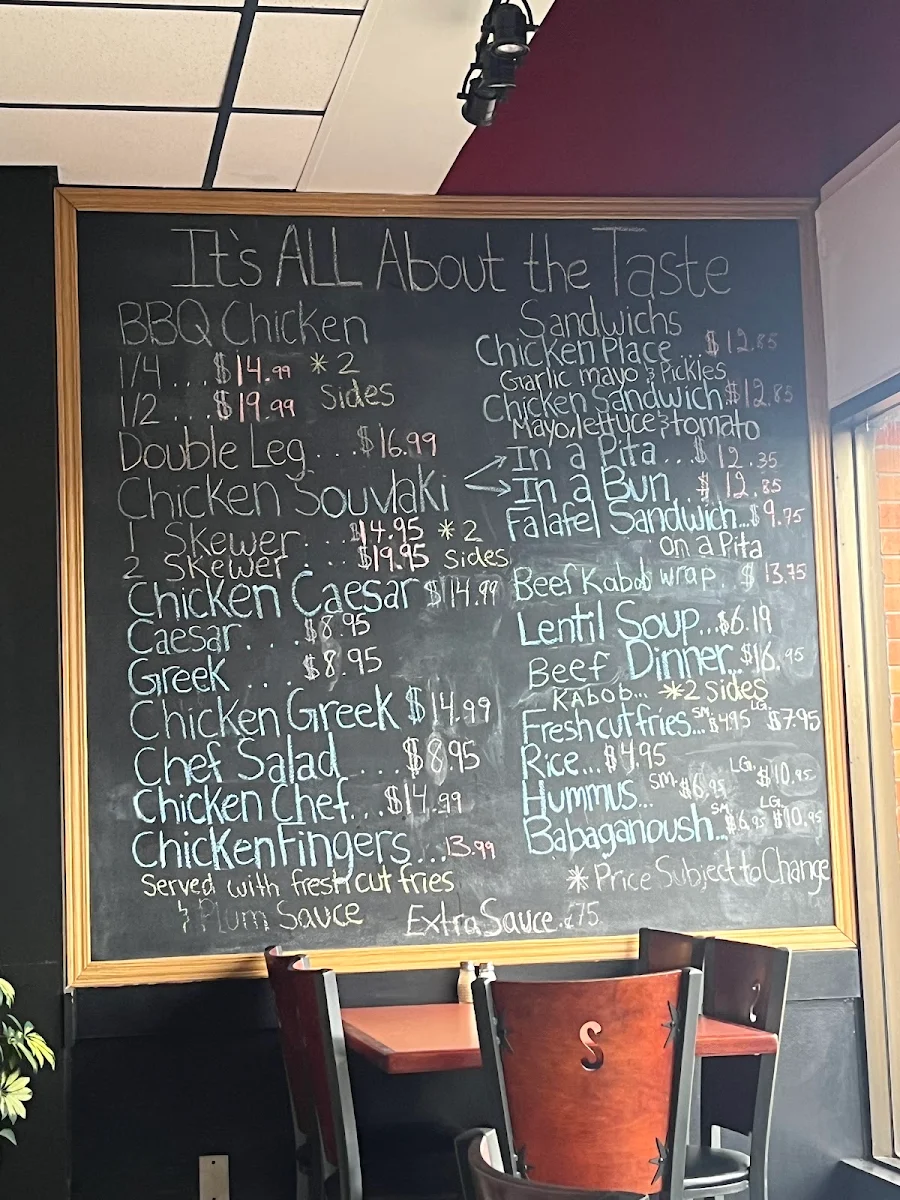 It's ALL About the Taste
BBQ Chicken
1/4 ... $14.99 *2
1/2 ... $19.99 Sides
Double Leg ... $16.99
Chicken Souvlaki
1 Skewer ... $14.95 *2
2 Skewer ... $19.95 sides
Chicken Caesar $14.99
Caesar ... $8.95
Greek ... $8.95
Chicken Greek $14.99
Chef Salad .... $8.95
Chicken Chef... $14.99
Chicken Fingers...13.99
Served with fresh cut fries
& Plum Sauce Extra Sauce .¢75
Sandwichs
Chicken Place ... $12.85
Garlic mayo & Pickles
Chicken Sandwich $12.85
Mayo, lettuce & tomato
In a Pita ... $12.35
In a Bun.. $12.85
Falafel Sandwich... $9.75
on a Pita
Beef Kabob wrap. $13.75
Lentil Soup... $6.19
Beef Dinner.. $16.95
KABOB... *2 sides
Fresh cut fries... SM. $4.95 LG. $7.95
Rice... $4.95
Hummus... SM. $6.95 LG. $10.95
Babaganoush... SM. $6.95 LG. $10.95
* Price Subject to Change
S